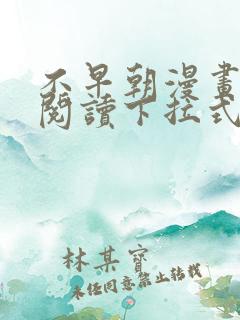 不早朝漫畫
閱讀下拉式
林某寶
未經同意禁止轉載